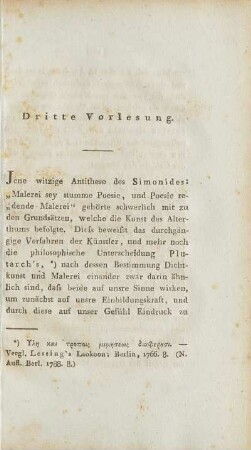 Dritte Vorlesung.
Jene witzige Antithese des Simonides:
„Malerei sey stumme Poesie, und Poesie re-
„dende Malerei“ gehörte schwerlich mit zu
den Grundsätzen, welche die Kunst des Alter-
thums befolgte. Diefs beweifst das durchgän-
gige Verfahren der Künstler, und mehr noch
die philosophische Unterscheidung Plu-
tarch's, *) nach dessen Bestimmung Dicht-
kunst und Malerei einander zwar darin ähn-
lich sind, dafs beide auf unsre Sinne wirken,
um zunächst auf unsre Einbildungskraft, und
durch diese auf unser Gefühl Eindruck zu
*) Ὑλη και τροποις μιμησεως διαφερουσι. —
Vergl. Lessing's Laokoon: Berlin, 1766. 8. (N.
Aufl. Berl. 1788. 8.)